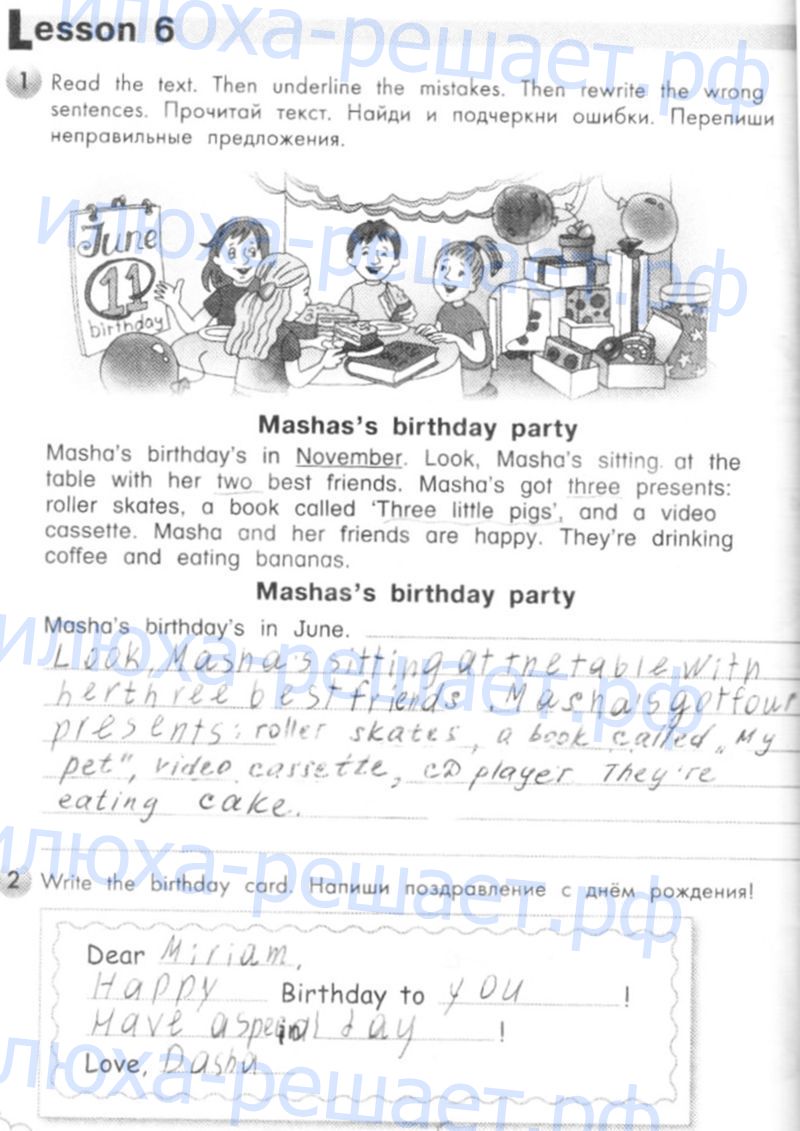 Lesson 6
1 Read the text. Then underline the mistakes. Then rewrite the wrong
sentences. Прочитай текст. Найди и подчеркни ошибки. Перепиши
неправильные предложения.
June
11
birthday
Mashas's birthday party
Masha's birthday's in November. Look, Masha's sitting at the
table with her two best friends. Masha's got three presents:
roller skates, a book called 'Three little pigs', and a video
cassette. Masha and her friends are happy. They're drinking
coffee and eating bananas.
Mashas's birthday party
Masha's birthday's in June.
Look, Masha's sitting at the table with
her three best friends. Masha's got four
presents: roller skates, a book called „My
pet", video cassette, CD player They're
eating cake.
2 Write the birthday card. Напиши поздравление с днём рождения!
Dear Miriam,
Happy Birthday to you!
Have a special day!
Love, Dasha
илюха-решает.рф
илюха-решает.рф
илюха-решает.рф
илюха-решает.рф
илюха-решает.рф